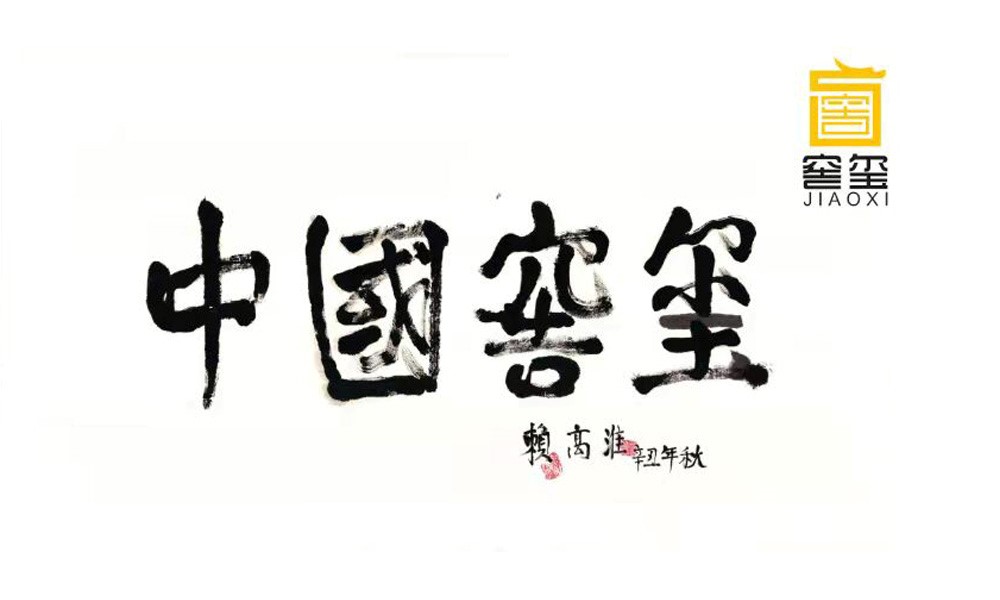 窖玺
JIAOXI
中國窖玺
賴高淮 辛丑年秋